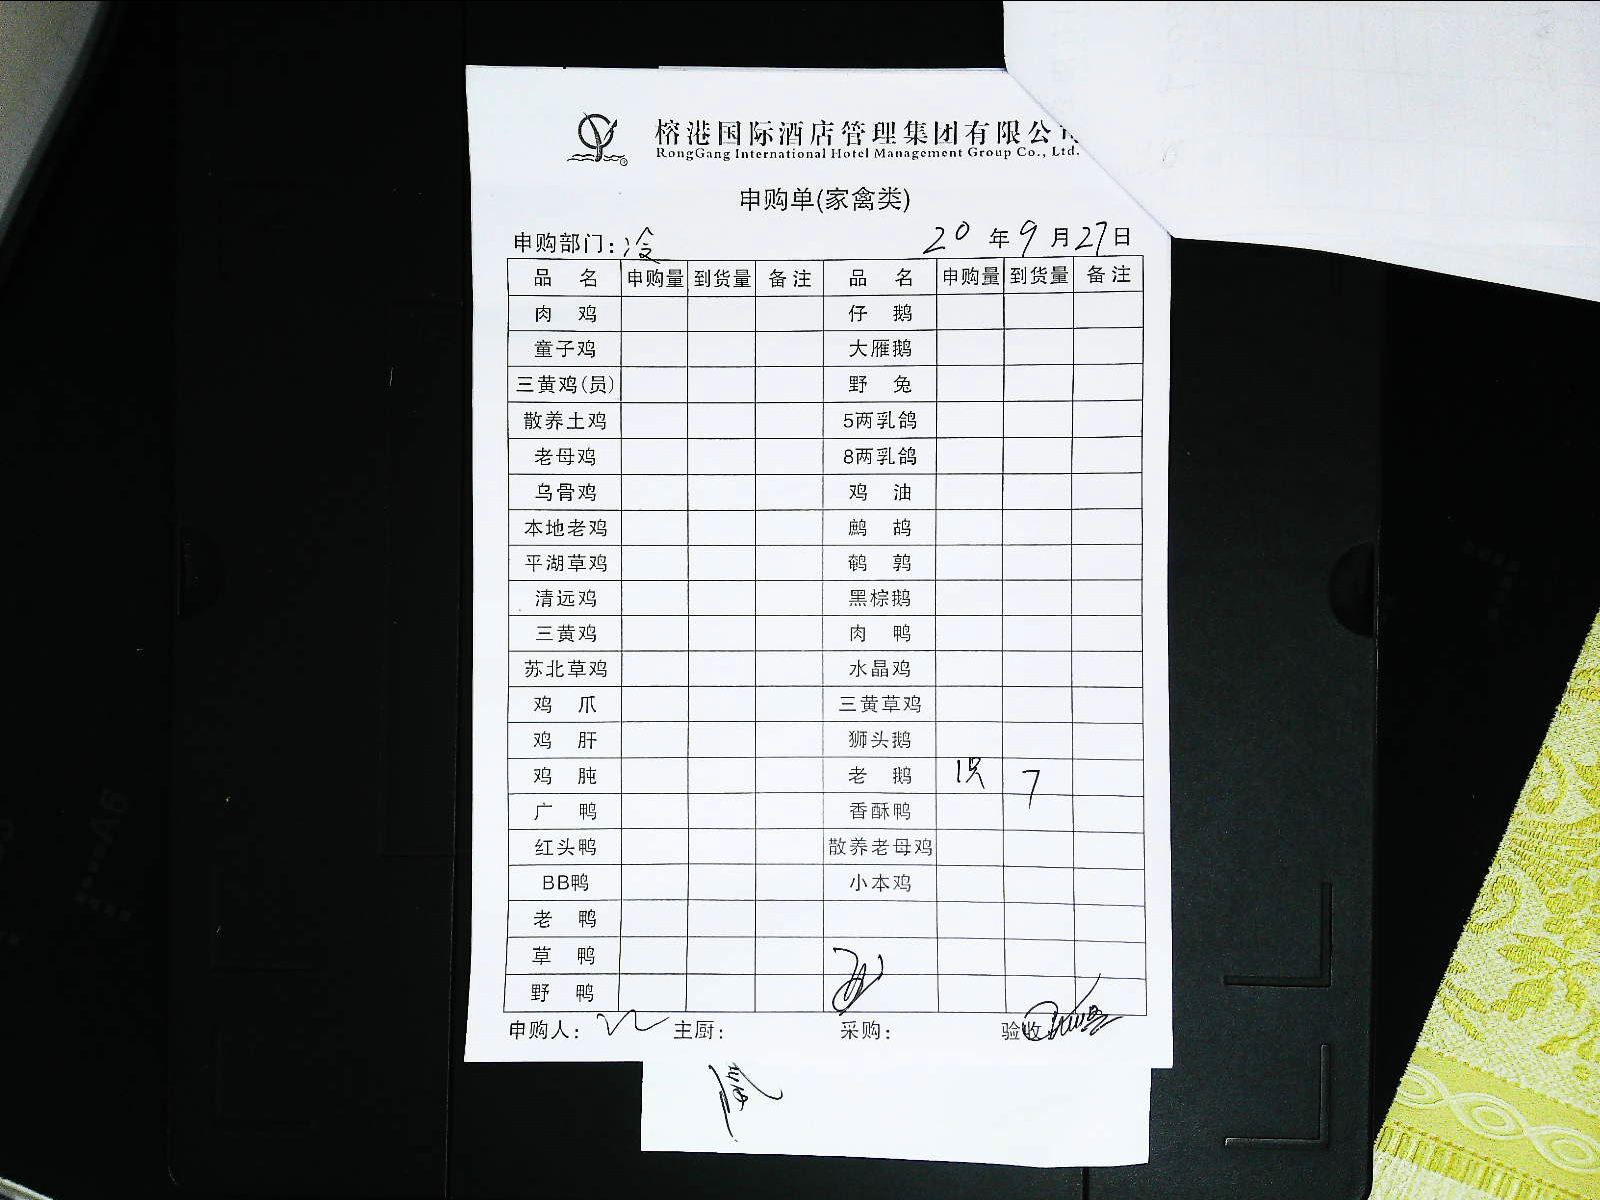 榕港国际酒店管理集团有限公司
RongGang International Hotel Management Group Co., Ltd.
申购单(家禽类)
申购部门:冷 20年9月27日
品名 申购量 到货量 备注 品名 申购量 到货量 备注
肉鸡 仔鹅
童子鸡 大雁鹅
三黄鸡(员) 野兔
散养土鸡 5两乳鸽
老母鸡 8两乳鸽
乌骨鸡 鸡油
本地老鸡 鹧鸪
平湖草鸡 鹌鹑
清远鸡 黑棕鹅
三黄鸡 肉鸭
苏北草鸡 水晶鸡
鸡爪 三黄草鸡
鸡肝 狮头鹅
鸡肫 老鹅 1只 7
广鸭 香酥鸭
红头鸭 散养老母鸡
BB鸭 小本鸡
老鸭
草鸭
野鸭
申购人: 主厨: 采购: 验收